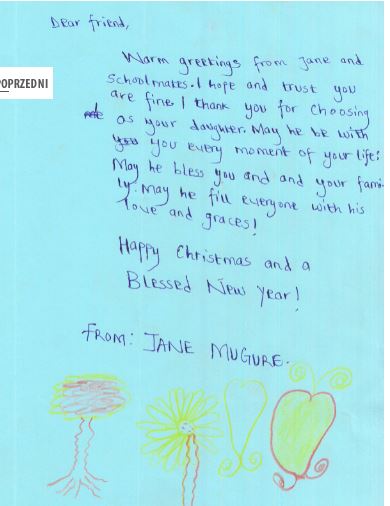 Dear friend,
POPRZEDNI
Warm greetings from Jane and
schoolmates. I hope and trust you
are fine. I thank you for choosing
as your daughter. May he be with
you every moment of your life.
May he bless you and and your fami
ly. May he fill everyone with his
love and graces!
Happy Christmas and a
Blessed New Year!
FROM: JANE MUGURE.